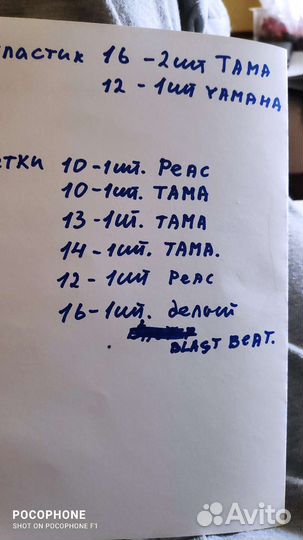 пластик 16 - 2шт TAMA
12 - 1шт YAMAHA
етки 10 - 1шт. Peac
10 - 1шт. TAMA
13 - 1шт. TAMA
14 - 1шт. TAMA.
12 - 1шт Peac
16 - 1шт. белый
BLAST BEAT.
POCOPHONE
SHOT ON POCOPHONE F1
Avito